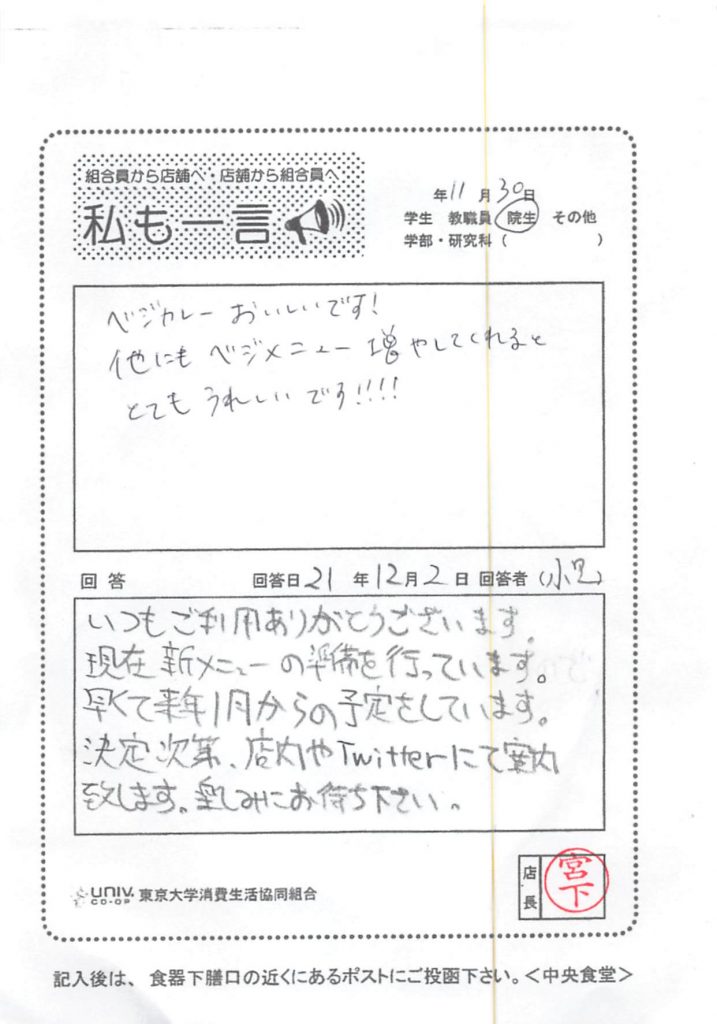 組合員から店舗へ・店舗から組合員へ
私も一言
年11月30日
学生 教職員 院生 その他
学部・研究科( )
ベジカレー おいしいです!
他にも ベジメニュー 増やしてくれると
とても うれしい です!!!!
回答 回答日 21 年 12月 2 日 回答者
いつもご利用ありがとうございます。
現在新メニューの準備を行っています。
早くて来年1月からの予定をしています。
決定次第、店内やTwitterにて案内
致します。楽しみにお待ち下さい。
UNIV. CO-OP 東京大学消費生活協同組合
店長 宮下
記入後は、食器下膳口の近くにあるポストにご投函下さい。<中央食堂>